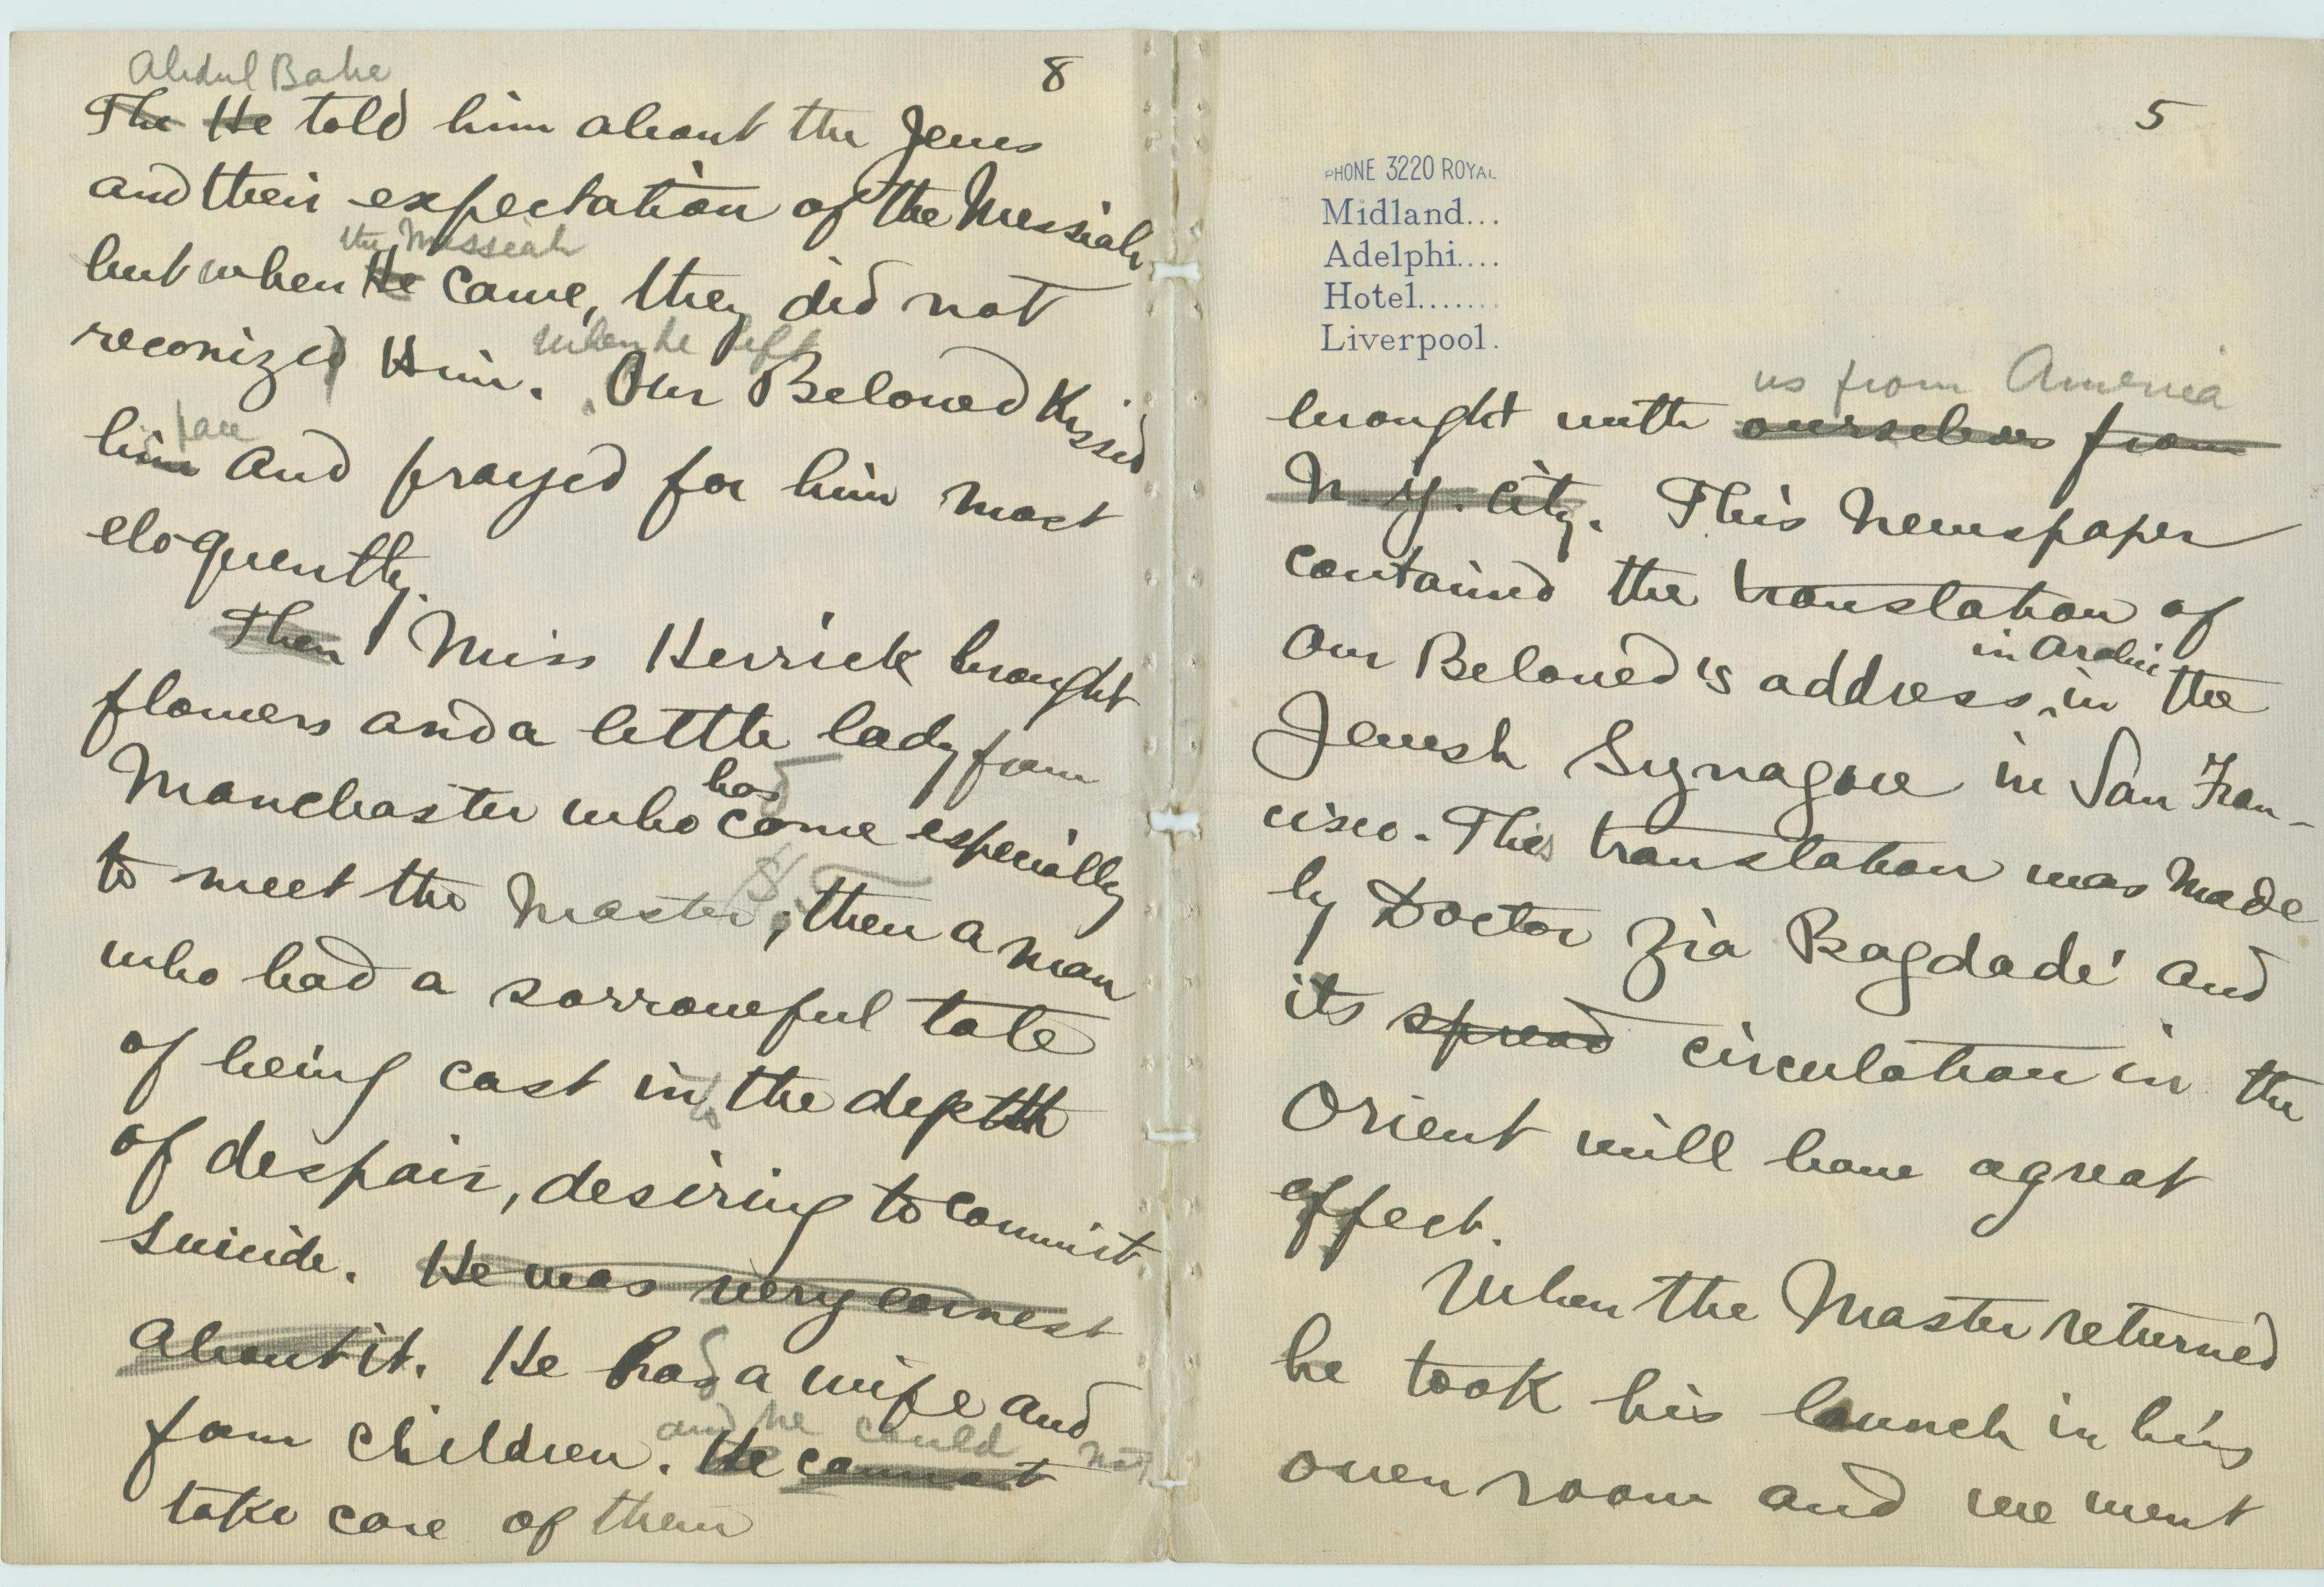 8
Abdul Baha
The He told him about the Jews
and their expectation of the Messiah
the Messiah
but when He came, they did not
when he left
reconized Him. Our Beloved Kissed
face
him and prayed for him most
eloquently.
Then Miss Herrick brought
flowers and a little lady from
had
Manchaster who come especially
to meet the Master; then a man
who had a sorrowful tale
of being cast into the depth
of despair, desiring to commit
suicide. He was very earnest
about it. He had a wife and
four children. He cannot
and he could not
take care of them
5
PHONE 3220 ROYAL
Midland...
Adelphi....
Hotel.......
Liverpool.
us from America
brought with ourselves from
N.Y. City. This Newspaper
contained the translation of
in Arabic
our Beloved's address, in the
Jewish Synagoue in San Fran-
cisco. This translation was made
by Doctor Zia Bagdadi and
its spread circulation in the
Orient will have a great
effect.
When the Master returned
he took his launch in his
own room and we went